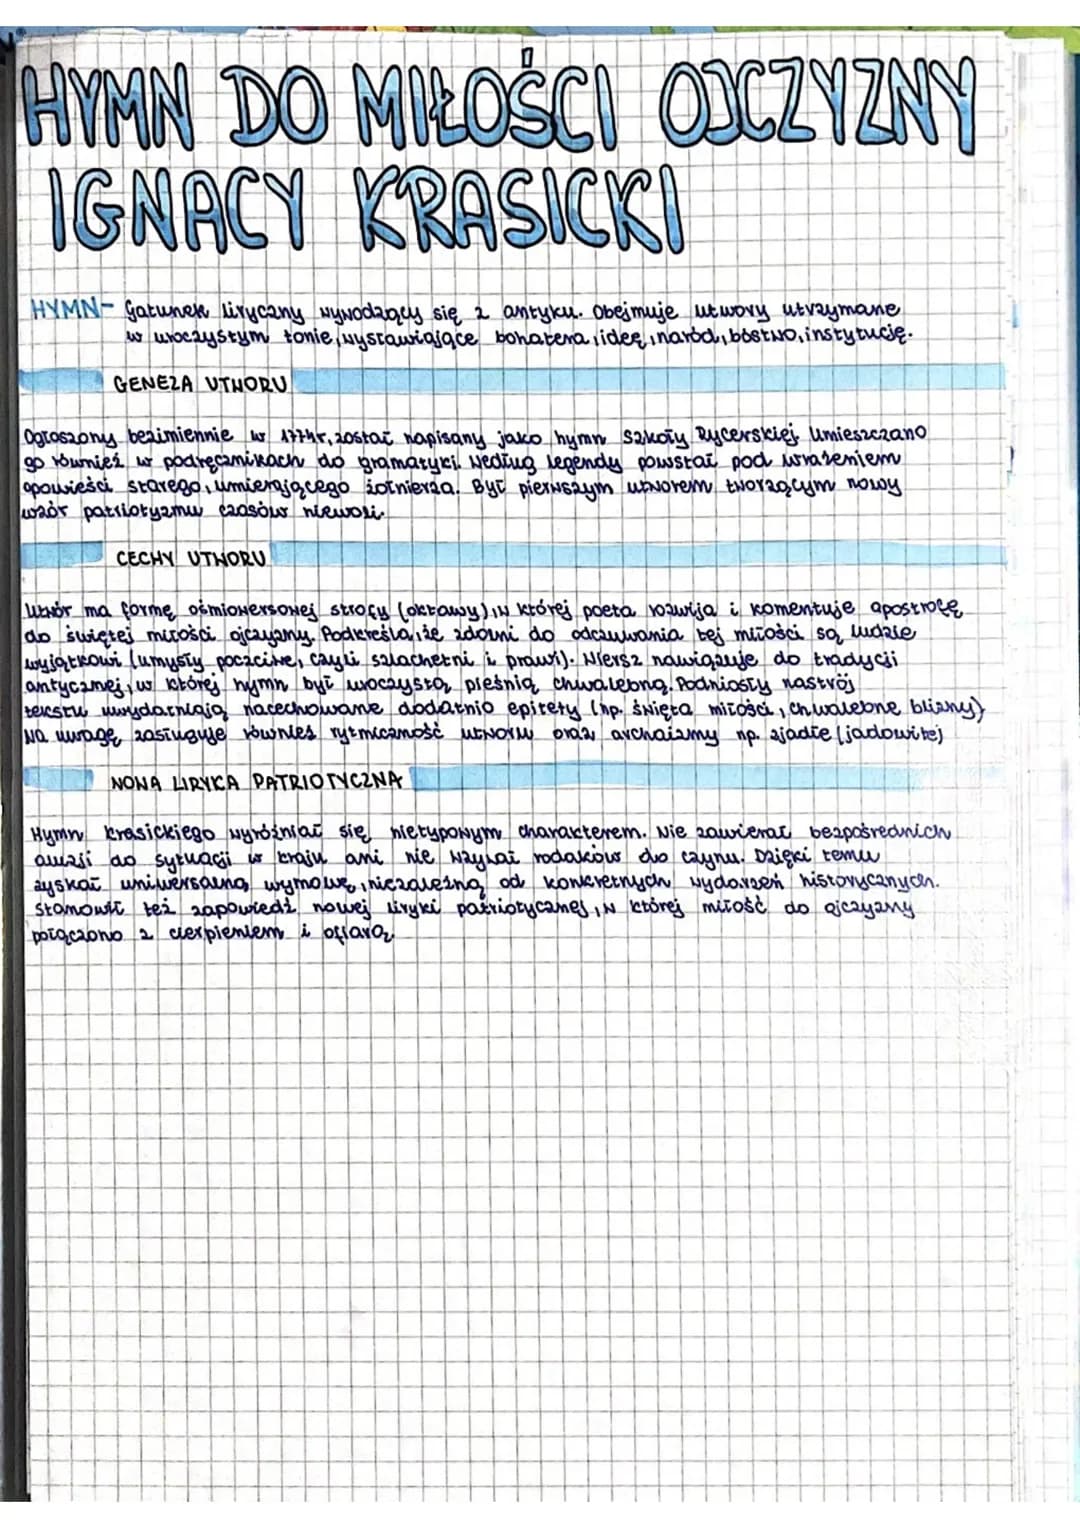 HYMN DO MIŁOŚCI OJCZYZNY
IGNACY KRASICKI
HYMN- Gatunek liryczny wywodzący się z antyku. Obejmuje utwory utrzymane
w uroczystym tonie, wystawiające bohatera, ideę, naród, bóstwo, instytucję.
GENEZA UTWORU
Ogłoszony bezimiennie w 1774r, został napisany jako hymn Szkoły Rycerskiej. Umieszczano
go również w podręcznikach do gramatyki. Według legendy powstał pod wrażeniem
opowieści starego, umierającego żołnierza. Był pierwszym utworem tworzącym nowy
wzór patriotyzmu czasów niewoli.
CECHY UTWORU
Utwór ma formę ośmiowersowej strofy (oktawy), w której poeta rozwija i komentuje apostrofę
do świętej miłości ojczyzny. Podkreśla, że zdolni do odczuwania tej miłości są ludzie
wyjątkowi (umysły poczciwe, czyli szlachetni i prawi). Wiersz nawiązuje do tradycji
antycznej, w której hymn był uroczystą pieśnią chwalebną. Podniosły nastrój
tekstu uwydatniają nacechowane dodatnio epitety (np. święta miłości, chwalebne blizny)
Na uwagę zasługuje również rytmiczność utworu oraz archaizmy np. zjadłe (jadowite)
NOWA LIRYKA PATRIOTYCZNA
Hymn Krasickiego wyróżniał się nietypowym charakterem. Nie zawierał bezpośrednich
aluzji do sytuacji w kraju ani nie wzywał rodaków do czynu. Dzięki temu
zyskał uniwersalną wymowę, niezależną od konkretnych wydarzeń historycznych.
Stanowił też zapowiedź nowej liryki patriotycznej, w której miłość do ojczyzny
połączono z cierpieniem i ofiarą.